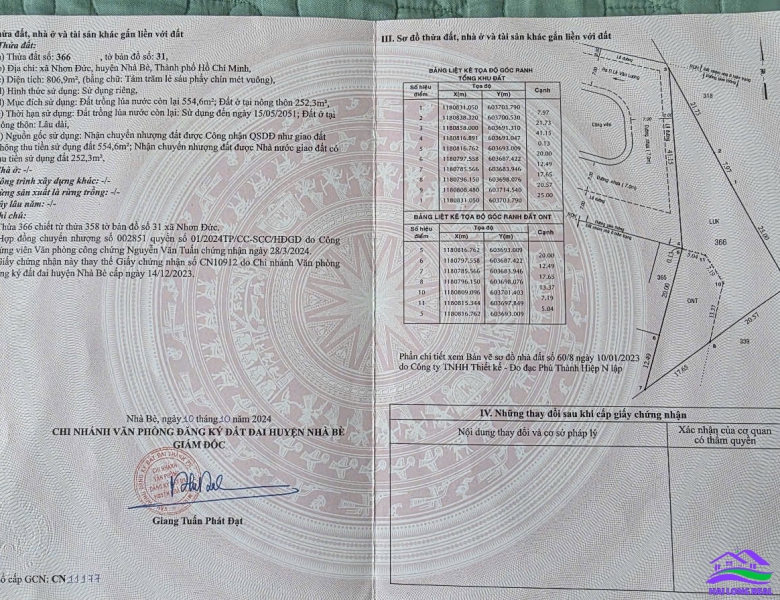 thửa đất, nhà ở và tài sản khác gắn liền với đất
Thửa đất:
) Thửa đất số: 366 , tờ bản đồ số: 31,
) Địa chỉ: xã Nhơn Đức, huyện Nhà Bè, Thành phố Hồ Chí Minh,
) Diện tích: 806,9m², (bằng chữ: Tám trăm lẻ sáu phẩy chín mét vuông),
) Hình thức sử dụng: Sử dụng riêng,
) Mục đích sử dụng: Đất trồng lúa nước còn lại 554,6m²; Đất ở tại nông thôn 252,3m²,
) Thời hạn sử dụng: Đất trồng lúa nước còn lại: Sử dụng đến ngày 15/05/2051; Đất ở tại
nông thôn: Lâu dài,
) Nguồn gốc sử dụng: Nhận chuyển nhượng đất được Công nhận QSDĐ như giao đất
không thu tiền sử dụng đất 554,6m²; Nhận chuyển nhượng đất được Nhà nước giao đất có
thu tiền sử dụng đất 252,3m².
Nhà ở: -/-
Công trình xây dựng khác: -/-
Rừng sản xuất là rừng trồng: -/-
Cây lâu năm: -/-
Ghi chú:
Thửa 366 chiết từ thửa 358 tờ bản đồ số 31 xã Nhơn Đức.
Hợp đồng chuyển nhượng số 002851 quyển số 01/2024TP/CC-SCC/HĐGD do Công
chứng viên Văn phòng công chứng Nguyễn Văn Tuấn chứng nhận ngày 28/3/2024.
Giấy chứng nhận này thay thế Giấy chứng nhận số CN10912 do Chi nhánh Văn phòng
đăng ký đất đai huyện Nhà Bè cấp ngày 14/12/2023.
Nhà Bè, ngày 10 tháng 10 năm 2024
CHI NHÁNH VĂN PHÒNG ĐĂNG KÝ ĐẤT ĐAI HUYỆN NHÀ BÈ
GIÁM ĐỐC
Giang Tuấn Phát Đạt
Số cấp GCN: CN 11177
III. Sơ đồ thửa đất, nhà ở và tài sản khác gắn liền với đất
BẢNG LIỆT KÊ TỌA ĐỘ GÓC RANH
TỔNG KHU ĐẤT
Số hiệu điểm Tọa độ Cạnh
X(m) Y(m)
1 1180831.050 603703.790
7.97
2 1180838.320 603700.530
21.73
3 1180858.000 603691.310
41.15
4 1180816.891 603693.047
0.13
5 1180816.762 603693.009
20.00
6 1180797.558 603687.422
12.49
7 1180785.566 603683.946
17.65
8 1180796.150 603698.076
20.57
9 1180808.480 603714.540
25.00
1 1180831.050 603703.790
BẢNG LIỆT KÊ TỌA ĐỘ GÓC RANH ĐẤT ONT
Số hiệu điểm Tọa độ Cạnh
X(m) Y(m)
5 1180816.762 603693.009
20.00
6 1180797.558 603687.422
12.49
7 1180785.566 603683.946
17.65
8 1180796.150 603698.076
13.37
10 1180809.096 603701.403
7.19
11 1180815.344 603697.849
5.04
5 1180816.762 603693.009
Lề đường
Công viên
Lề đường
318
21.73
7.97
41.15
LUK
366
25.00
0.13
5.04
7.19
365
20.00
ONT
13.37
20.57
12.49
17.65
339
Phần chi tiết xem Bản vẽ sơ đồ nhà đất số 60/8 ngày 10/01/2023
do Công ty TNHH Thiết kế - Đo đạc Phú Thành Hiệp N lập
IV. Những thay đổi sau khi cấp giấy chứng nhận
Nội dung thay đổi và cơ sở pháp lý
Xác nhận của cơ quan
có thẩm quyền
HALLONG REAL